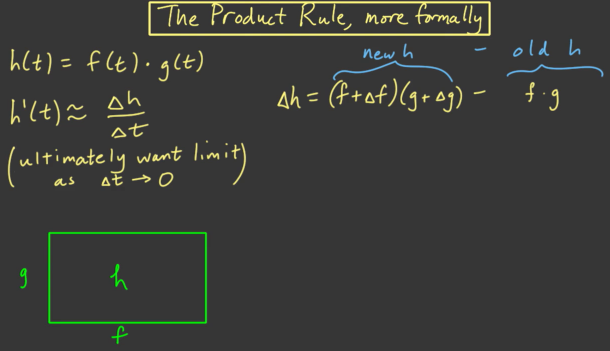 The Product Rule, more formally
h(t) = f(t) · g(t)
h'(t) ≈ Δh/Δt
(ultimately want limit
as Δt → 0)
new h - old h
Δh = (f+Δf)(g+Δg) - f·g
g
h
f